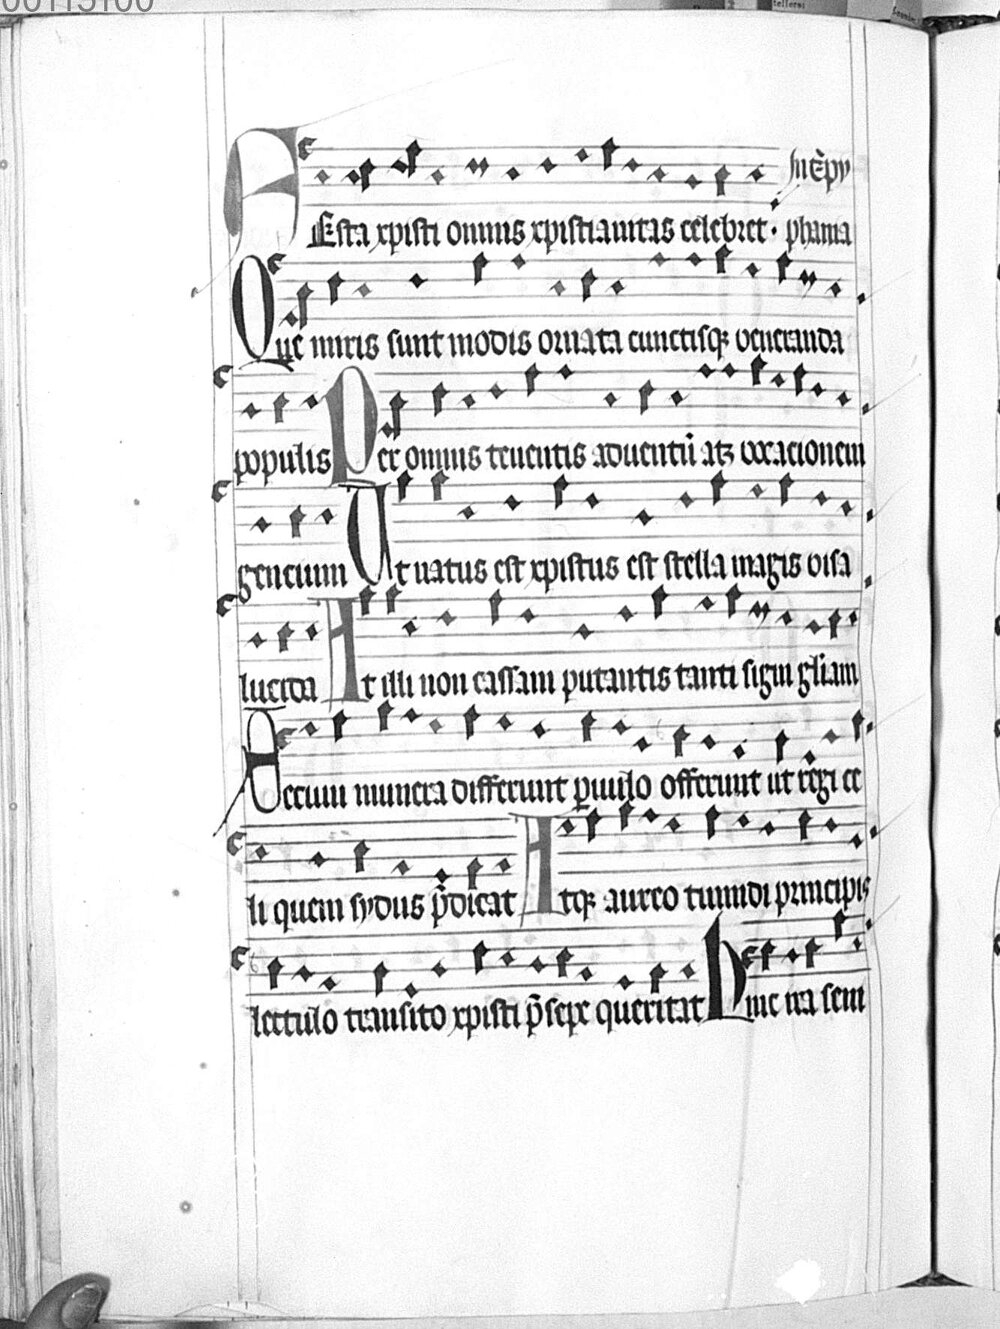 00113100
tellers:
In epy
FEsta xpisti omnis xpistianitas celebret · phania
Que miris sunt modis ornata cunctisq; ueneranda
populis Per omnis tenentis aduentū atq; uocacionem
gencium Ut natus est xpistus est stella magis uisa
lucida At illi non cassam putantis tanti signi gliam
Secum munera differunt puulo offerunt ut regi ce
li quem sydus p̄dicat Atq; aureo tumidi principis
lectulo transito xpisti p̄sepe queritat Hinc ira seui